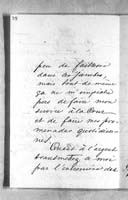 peu de faiblesse
dans les jambes,
mais tout de même
ça ne m'empêche
pas de faire mon
service à la Cour
et de faire mes pro-
menades quotidien-
nes.
Quant à l'argent
transmettez à moi
par l'intermédiaire des